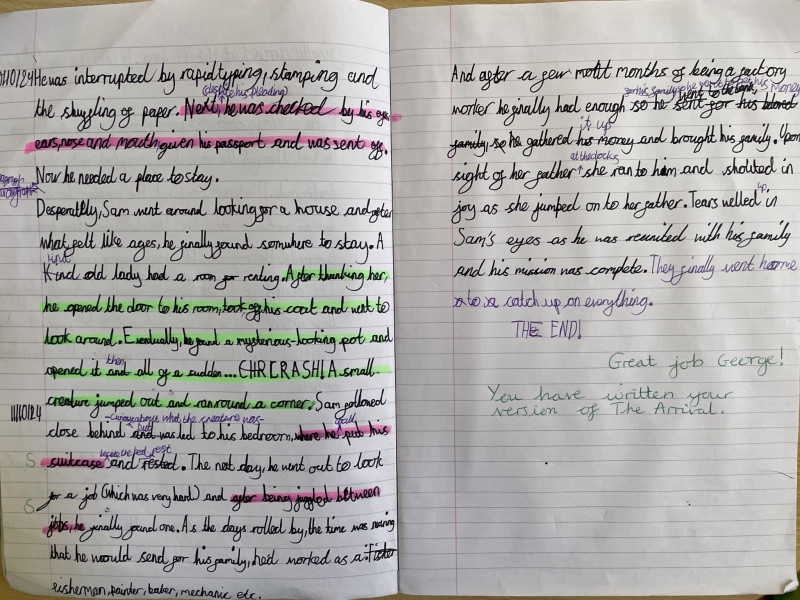 10/10/24 He was interrupted by rapid typing, stamping and
(despite his pleading)
the shuffling of paper. Next, he was checked by his eyes
ears, nose and mouth given his passport and was sent off.
Now he needed a place to stay.
Desperatly, Sam went around looking for a house and after
what felt like ages, he finally found somwhere to stay. A
kind
Kind old lady had a room for renting. After thanking her,
he opened the door to his room, took off his coat and went to
look around. Eventually, he found a mysterious-looking pot and
then
opened it and all of a sudden... CHRCRASH! A small
creature jumped out and ran round a corner. Sam followed
11/10/24
- curious about what the creature was -
close behind and was led to his bedroom, where he put his
S suitcase and rested. The next day, he went out to look
beside the bed
rest
S for a job (which was very hard) and after being juggled between
jobs, he finally found one. As the days rolled by, the time was nearing
that he would send for his family, he'd worked as a Fisher
fisherman, painter, baker, mechanic etc.
And after a few motit months of being a factory
worker he finally had enough so he sent for his beloved
family, so he gathered his money and brought his family. Upon
it up
at the docks
sight of her father she ran to him and shouted in
joy as she jumped on to her father. Tears welled in
up
Sam's eyes as he was reunited with his family
and his mission was complete. They finally went home
to catch up on everything.
THE END!
Great job George!
You have written your
version of The Arrival.